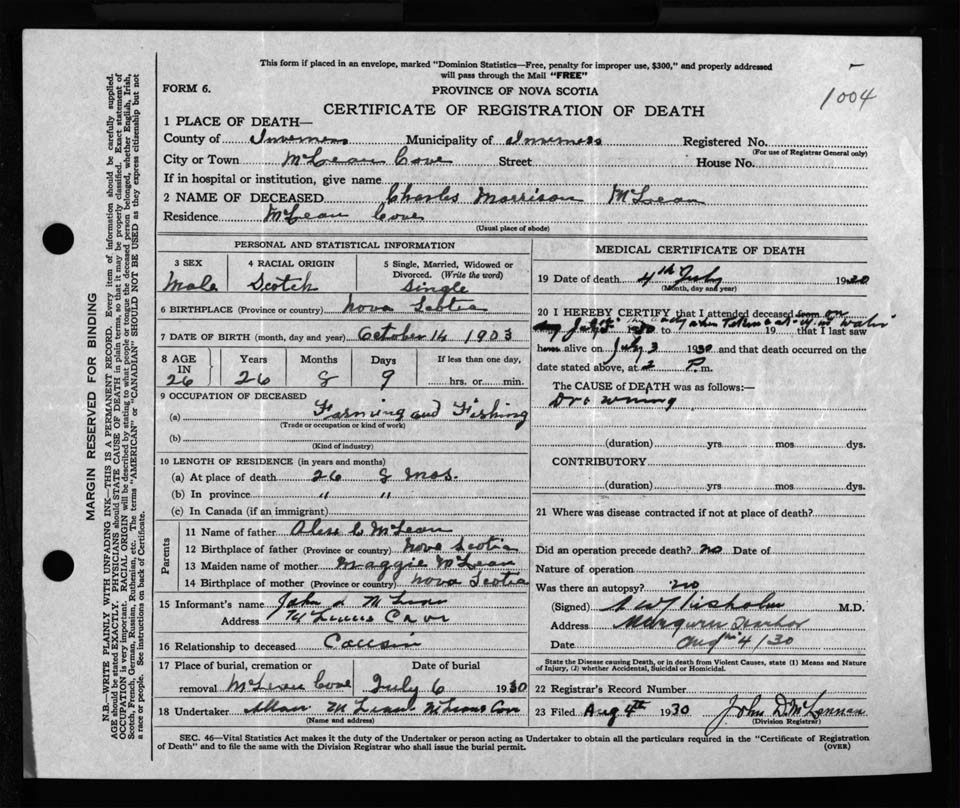 This form if placed in an envelope, marked "Dominion Statistics—Free, penalty for improper use, $300," and properly addressed
will pass through the Mail "FREE"
1004
FORM 6.
PROVINCE OF NOVA SCOTIA
CERTIFICATE OF REGISTRATION OF DEATH
1 PLACE OF DEATH—
County of Inverness Municipality of Inverness Registered No.
(For use of Registrar General only)
City or Town McLean Cove Street House No.
If in hospital or institution, give name
2 NAME OF DECEASED Charles Morrison McLean
Residence McLean Cove
(Usual place of abode)
MARGIN RESERVED FOR BINDING
N.B.—WRITE PLAINLY WITH UNFADING INK—THIS IS A PERMANENT RECORD. Every item of information should be carefully supplied.
AGE should be stated EXACTLY. PHYSICIANS should STATE CAUSE OF DEATH in plain terms, so that it may be properly classified. Exact statement of
OCCUPATION is very important. RACIAL ORIGIN will be described by stating to what people or tongue the deceased person belonged, whether English, Irish,
Scotch, French, German, Russian, Ruthenian, etc. The terms "AMERICAN" or "CANADIAN" SHOULD NOT BE USED as they express citizenship but not
a race or people. See instructions on back of Certificate.
PERSONAL AND STATISTICAL INFORMATION
3 SEX
Male
4 RACIAL ORIGIN
Scotch
5 Single, Married, Widowed or
Divorced. (Write the word)
Single
6 BIRTHPLACE (Province or country) Nova Scotia
7 DATE OF BIRTH (month, day and year) October 14 1903
8 AGE
IN
26
Years
26
Months
8
Days
9
If less than one day,
hrs. or min.
9 OCCUPATION OF DECEASED
(a) Farming and Fishing
(Trade or occupation or kind of work)
(b)
(Kind of industry)
10 LENGTH OF RESIDENCE (in years and months)
(a) At place of death 26 8 mos.
(b) In province " "
(c) In Canada (if an immigrant)
Parents
11 Name of father Alex C McLean
12 Birthplace of father (Province or country) Nova Scotia
13 Maiden name of mother Maggie McLean
14 Birthplace of mother (Province or country) Nova Scotia
15 Informant's name
Address
16 Relationship to deceased Causin
17 Place of burial, cremation or
removal McLean Cove
Date of burial
July 6 1930
18 Undertaker Allan McLean McLeans Cove
(Name and address)
MEDICAL CERTIFICATE OF DEATH
19 Date of death 4th July 1930
(Month, day and year)
20 I HEREBY CERTIFY that I attended deceased from
to 19 that I last saw
him alive on July 3 1930 and that death occurred on the
date stated above, at 2 P.m.
The CAUSE of DEATH was as follows:—
Drowning
(duration) yrs mos dys.
CONTRIBUTORY
(duration) yrs mos dys.
21 Where was disease contracted if not at place of death?
Did an operation precede death? no Date of
Nature of operation
Was there an autopsy? no
(Signed) Chisholm M.D.
Address Margaree Harbor
Date Aug 4/30
State the Disease causing Death, or in death from Violent Causes, state (1) Means and Nature
of Injury, (2) whether Accidental, Suicidal or Homicidal.
22 Registrar's Record Number
23 Filed Aug 4th 1930 John D. McLennan
(Division Registrar)
SEC. 46—Vital Statistics Act makes it the duty of the Undertaker or person acting as Undertaker to obtain all the particulars required in the "Certificate of Registration
of Death" and to file the same with the Division Registrar who shall issue the burial permit.
(OVER)